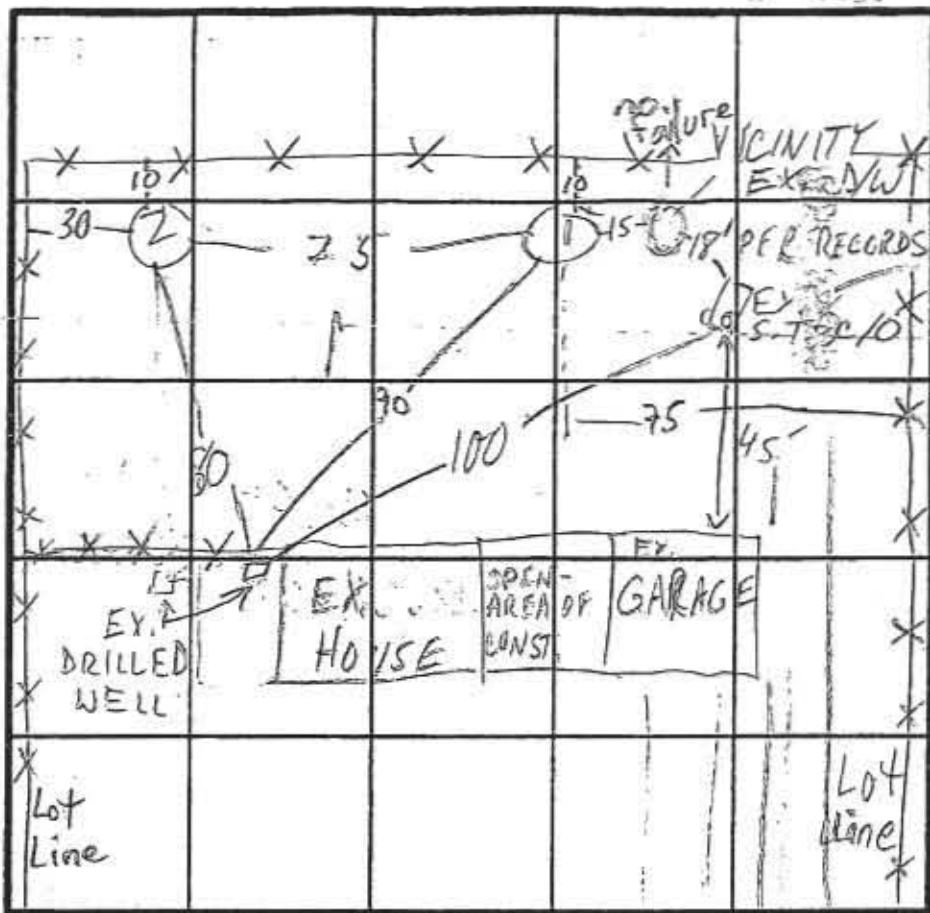 no
failure
VICINITY
EX. D/W
10
10
30
2
75
1
15
18'
PER RECORDS
EX
S.T. C/O
90
100
75
45'
80
EX.
DRILLED
WELL
EX.
HOUSE
OPEN
AREA OF
CONST
EX.
GARAGE
Lot
Line
Lot
Line